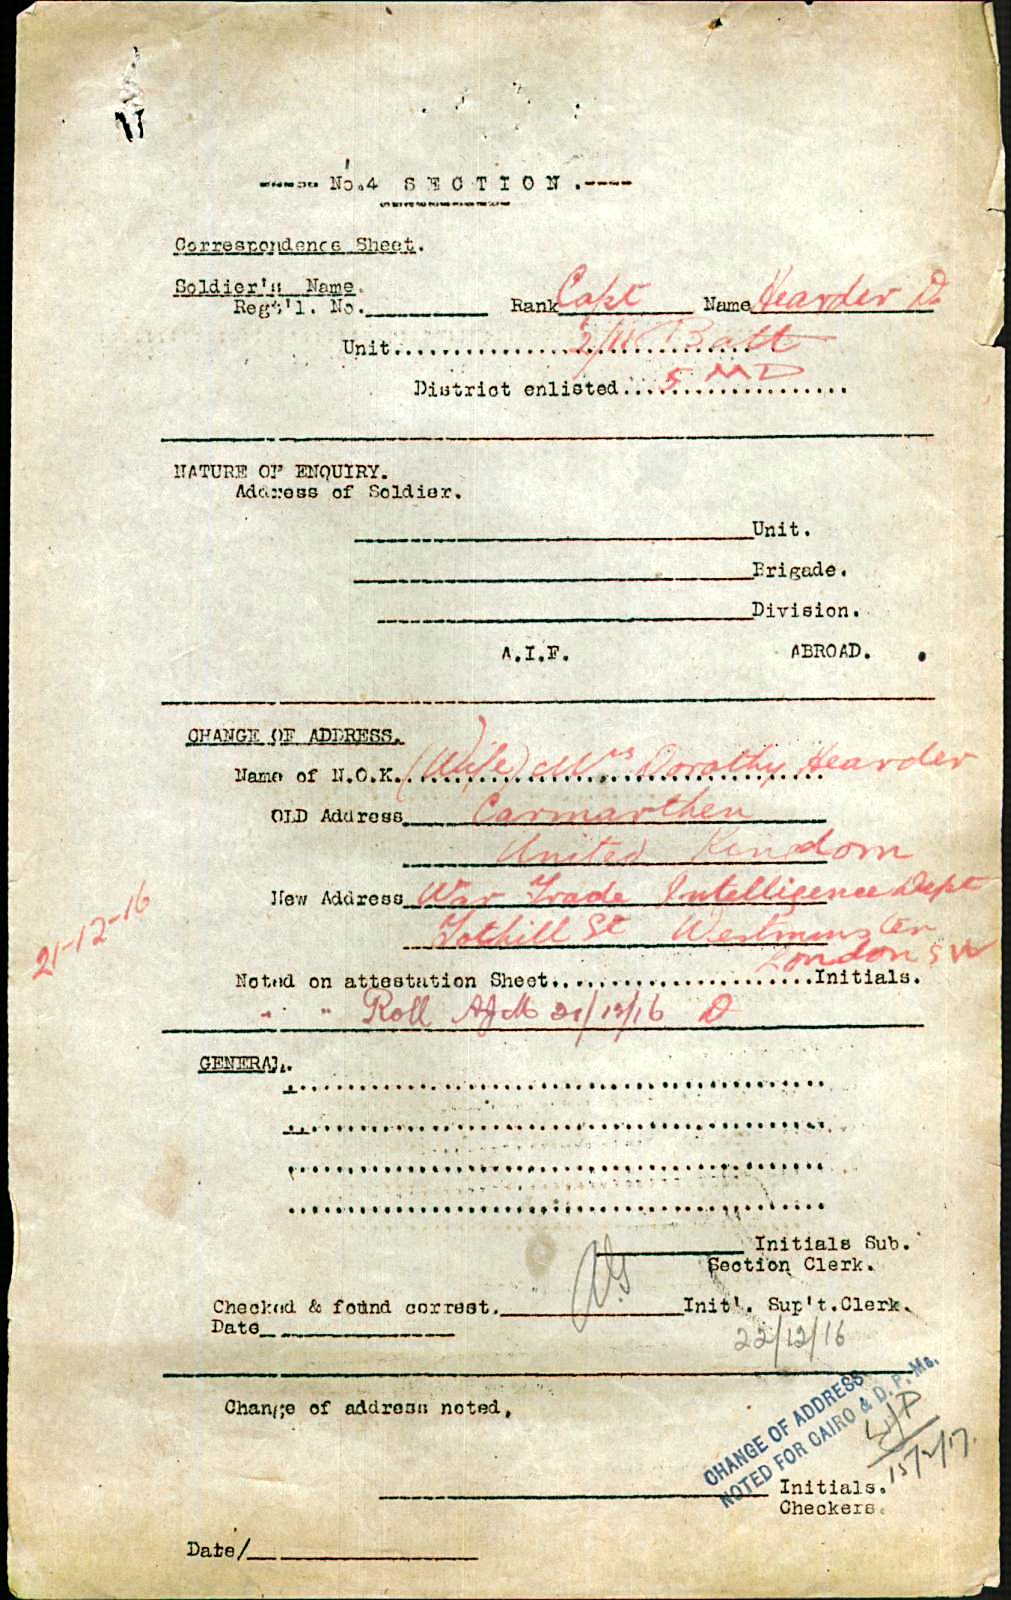 ----- No.4 SECTION.----
Correspondence Sheet.
Soldier's Name.
Regt'l. No.________ Rank Capt Name Hearder D.
Unit.......2/11 Batt
District enlisted....5 MD............
NATURE OF ENQUIRY.
Address of Soldier.
____________Unit.
____________Brigade.
____________Division.
A.I.F. ABROAD.
CHANGE OF ADDRESS.
Name of N.O.K. (Wife) Mrs Dorothy Hearder
OLD Address Carmarthen
United Kingdom
New Address War Trade Intelligence Dept
21-12-16
Tothill St Westminster
London S W
Noted on attestation Sheet......................Initials.
" " Roll AJM 21/12/16 D
GENERAL.
________ Initials Sub.
Section Clerk.
Checked & found correct.____________Init'. Sup't.Clerk.
Date____________ 22/12/16
CHANGE OF ADDRESS
NOTED FOR CAIRO & D.P. Ms.
Change of address noted.
15/2/17.
____________ Initials.
Checkers.
Date/____________